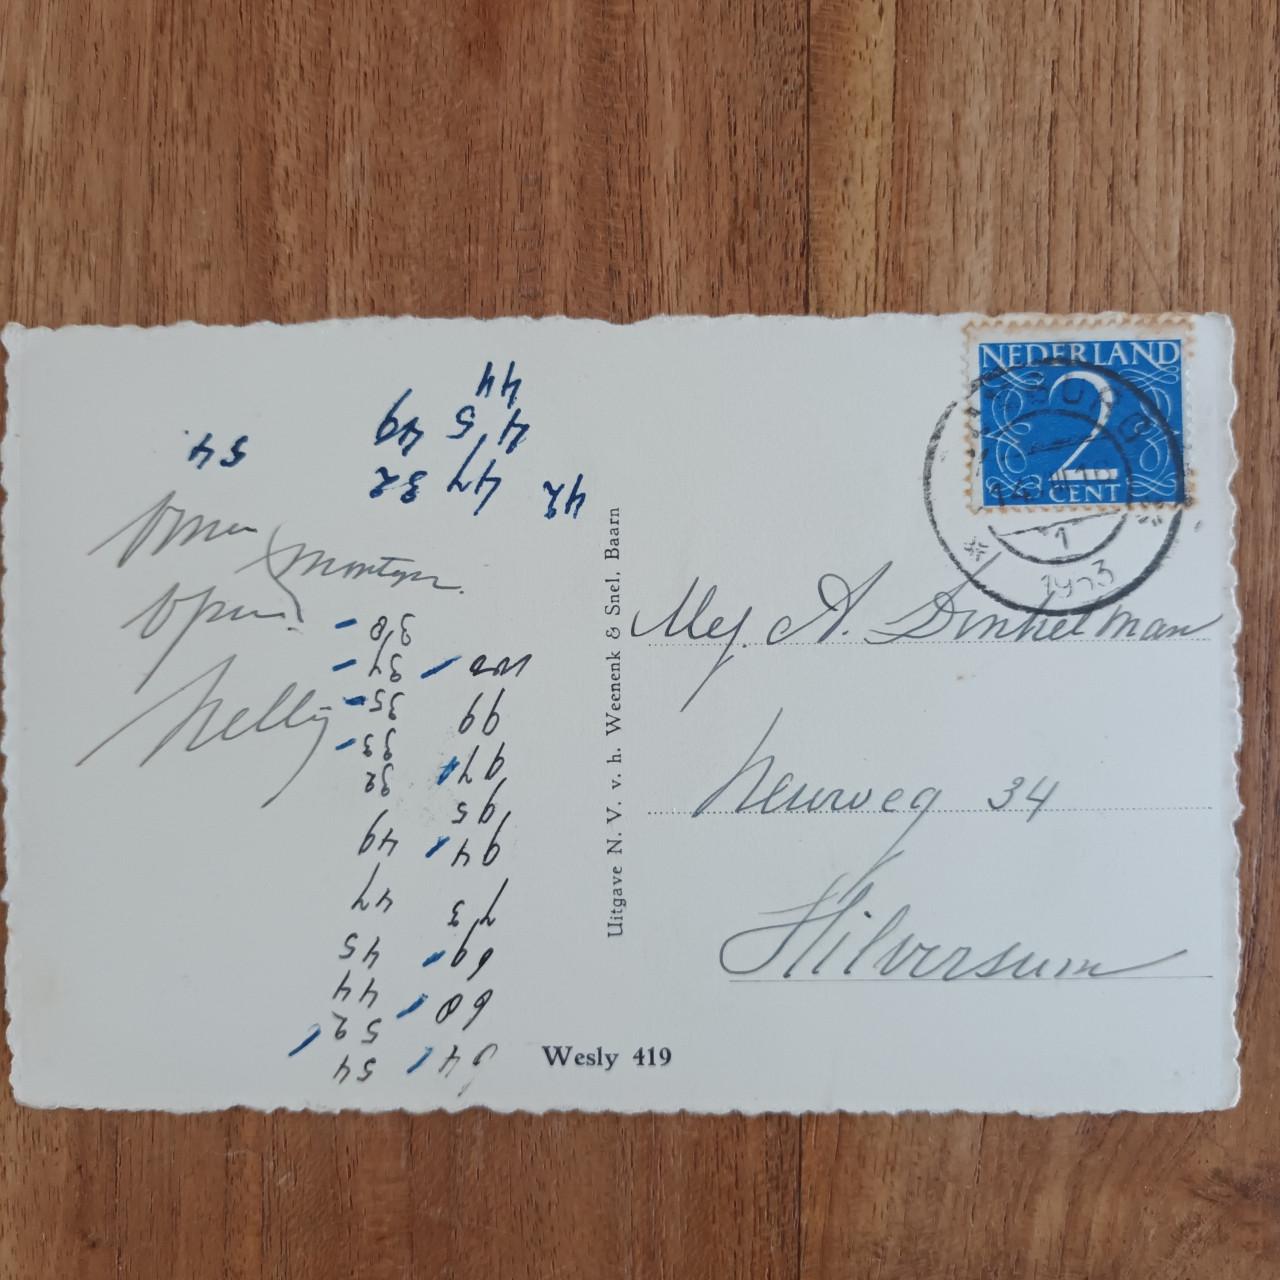 NEDERLAND
2
CENT
1
1953
Mej. A. Dinkelman
34
Hilversum
Uitgave N. V. v. h. Weenenk & Snel, Baarn
Wesly 419
Oma
Montijn.
Opa
Nelly
54
52
44
45
47
49
32
33
35
37
38
64
60
69
73
94
95
97
99
100
42
47 32
45 49
44
54